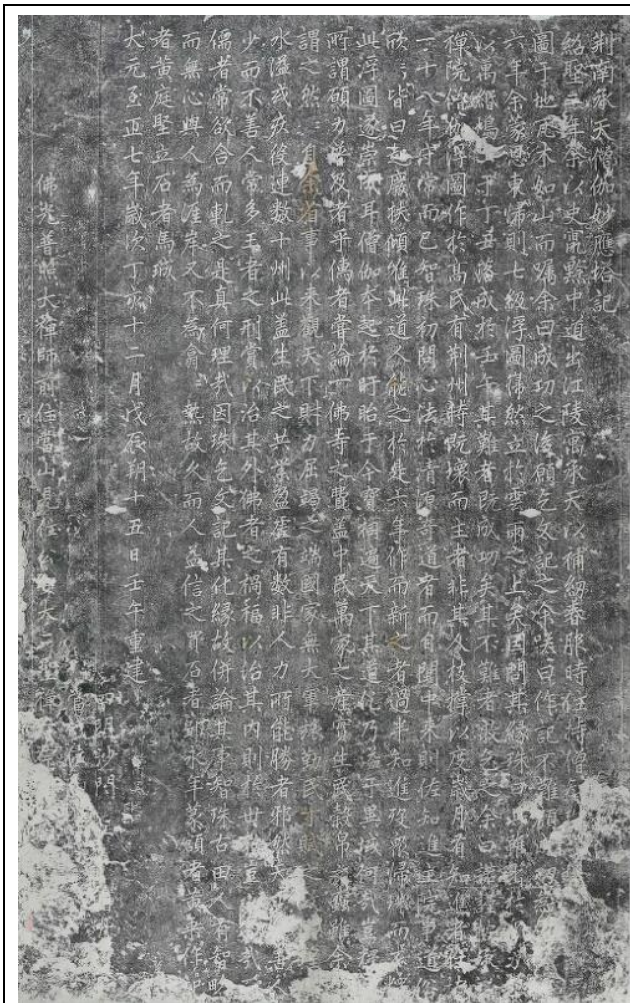 荊南承天僧伽妙應塔記
紹聖二年余以史寘黔中道出江陵寓承天以補紉春服時住持僧
圖于地瓦木如山而囑余曰成功之後願乞文記之余咲曰作記不難顧
六年余蒙恩東歸則七級浮圖儼然立於雲雨之上矣因問其緣珠曰此雖出於
以萬緡于丁丑落成於壬午其難者既成功矣其不難者敢乞之余曰諾謹按
禪院僧伽浮圖作於高氏有荊州時既壞而主者非其人枝撐以度歲月有知進者住
一十八年守常而已智珠初問心法於清源奇道者而自閩中來則佐知進主院事道俗
欣欣皆曰起廢扶傾惟此道人能之於是六年作而新之者過半知進歿眾歸珠而不
此浮圖遂崇成耳僧伽本起於盱眙于今寶稱遍天下其道化乃溢于異域何哉豈
所謂願力普及者乎儒者嘗論一佛寺之費蓋中民萬家之產實生民穀帛之蠹雖余
謂之然然自余省事以來觀天下財力屈竭之端國家無大軍旅勤民丁賦之
水溢或疾疫連數十州此蓋生民之共業盈虛有數非人力所能勝者邪然天善人
少而不善人常多王者之刑賞以治其外佛者之禍福以治其內則於世教豈哉
儒者常欲合而軋之是真何理哉因珠乞文記其化緣故併論其事智珠古田人有智略
而無心與人無崖岸又不為翕翕熱故久而人益信之
者黃庭堅立石者馬瑊
大元至正七年歲次丁亥十二月戊辰朔十五日壬午重建
四明沙門
佛光普照大禪師前住當山見住